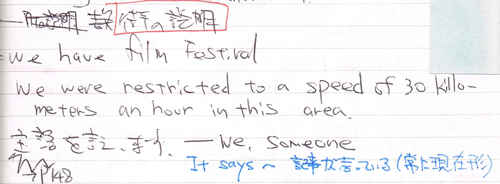 の説明
- we have film Festival
we were restricted to a speed of 30 killo-
meters an hour in this area.
主語を ます. — we, someone
P148 It says ~ 記事が言っている (常に現在形)